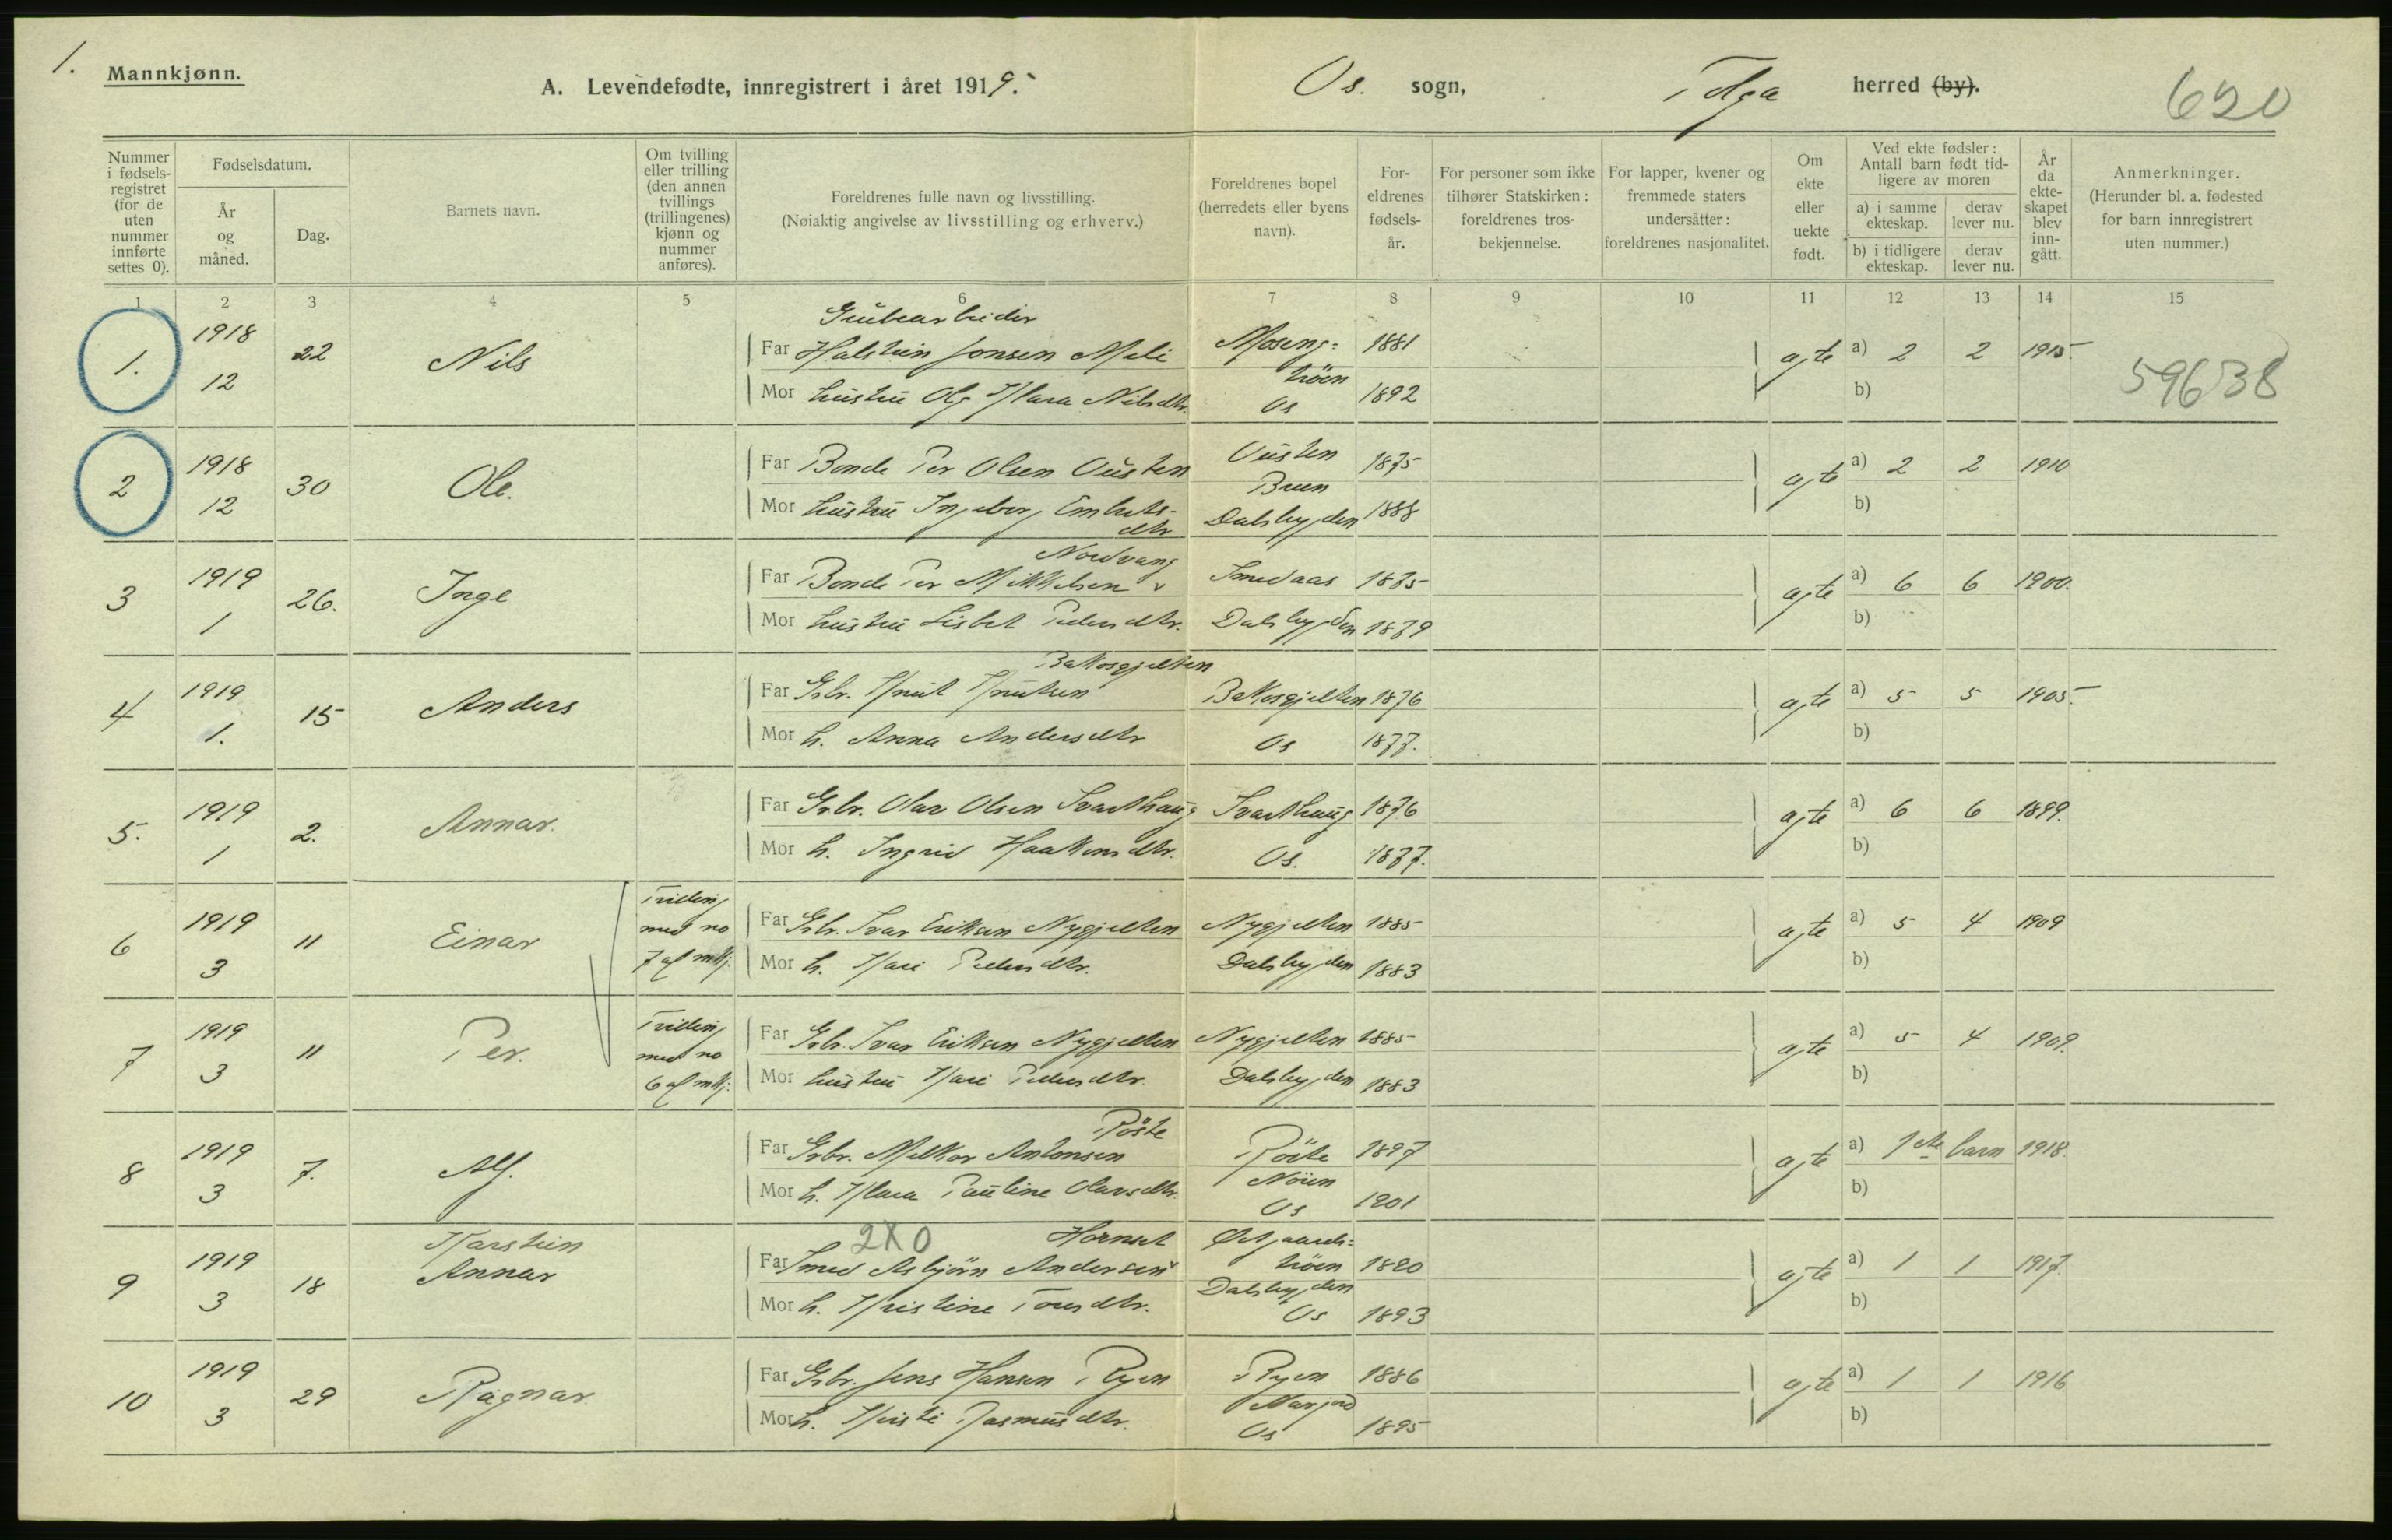 1.
Mannkjønn.
A. Levendefødte, innregistrert i året 1919. Os. sogn, Tolga herred (by).
620
Nummer i fødsels-registret (for de uten nummer innførte settes 0).
Fødselsdatum.
År og måned.
Dag.
Barnets navn.
Om tvilling eller trilling (den annen tvillings (trillingenes) kjønn og nummer anføres).
Foreldrenes fulle navn og livsstilling.
(Nøiaktig angivelse av livsstilling og erhverv.)
Foreldrenes bopel (herredets eller byens navn).
For-eldrenes fødsels-år.
For personer som ikke tilhører Statskirken: foreldrenes tros-bekjennelse.
For lapper, kvener og fremmede staters undersåtter: foreldrenes nasjonalitet.
Om ekte eller uekte født.
Ved ekte fødsler: Antall barn født tid-ligere av moren
a) i samme ekteskap.
derav lever nu.
b) i tidligere ekteskap.
derav lever nu.
År da ekte-skapet blev inn-gått.
Anmerkninger.
(Herunder bl. a. fødested for barn innregistrert uten nummer.)
1 2 3 4 5 6 7 8 9 10 11 12 13 14 15
Grubearbeider
1. 1918 12 22 Nils
Far Halstein Jonsen Meli Moseng= 1881
trøen
Mor hustru Olg Klara Nilsdtr. Os 1892
ægte a) 2 2 1915
b)
59638
2 1918 12 30 Ole.
Far Bonde Per Olsen Ousten Ousten 1875
Bruen
Mor hustru Ingeborg Embrets-dtr Dalsbygden 1888
ægte a) 2 2 1910
b)
3 1919 1 26. Inge
Nordvang
Far Bonde Per Mikkelsen Smedaas 1875
Mor hustru Lisbet Pedersdtr. Dalsbygden 1879
ægte a) 6 6 1900.
b)
4 1919 1. 15 Anders
Bakosgjelten
Far Gbr. Knut Knutsen Bakosgjelten 1876
Mor h. Anna Andersdtr Os 1877.
ægte a) 5 5 1905
b)
5. 1919 1 2. Annar.
Far Gbr. Olav Olsen Svarthaug Svarthaug 1876
Mor h. Ingrid Haakensdtr. Os. 1877.
ægte a) 6 6 1899.
b)
6 1919 3 11 Einar
Tvilling med no 7 af mkj.
Far Gbr. Ivar Eriksen Nygjelten Nygjelten 1885
Mor h. Kari Pedersdtr. Dalsbygden 1883
ægte a) 5 4 1909
b)
7 1919 3 11 Per.
Tvilling med no 6 af mkj.
Far Gbr. Ivar Eriksen Nygjelten Nygjelten 1885
Mor hustru Kari Pedersdtr. Dalsbygden 1883
ægte a) 5 4 1909.
b)
8 1919 3 7. Alf.
Røste
Far Gbr. Melkor Antonsen Røste 1897
Nøren
Mor h. Klara Pauline Olavsdtr. Os 1901
ægte a) 1ste barn 1918.
b)
2X0
9 1919 3 18 Karstein Annar
Hornset Østgaards=
Far Smed Asbjørn Andersen trøen 1890
Dalsbygden
Mor h. Kristine Toresdtr. Os 1893
ægte a) 1 1 1917.
b)
10 1919 3 29 Ragnar.
Far Gbr. Jens Hansen Ryen Ryen 1886
Narjord
Mor h. Kristi Rasmusdtr. Os 1895
ægte a) 1 1 1916
b)